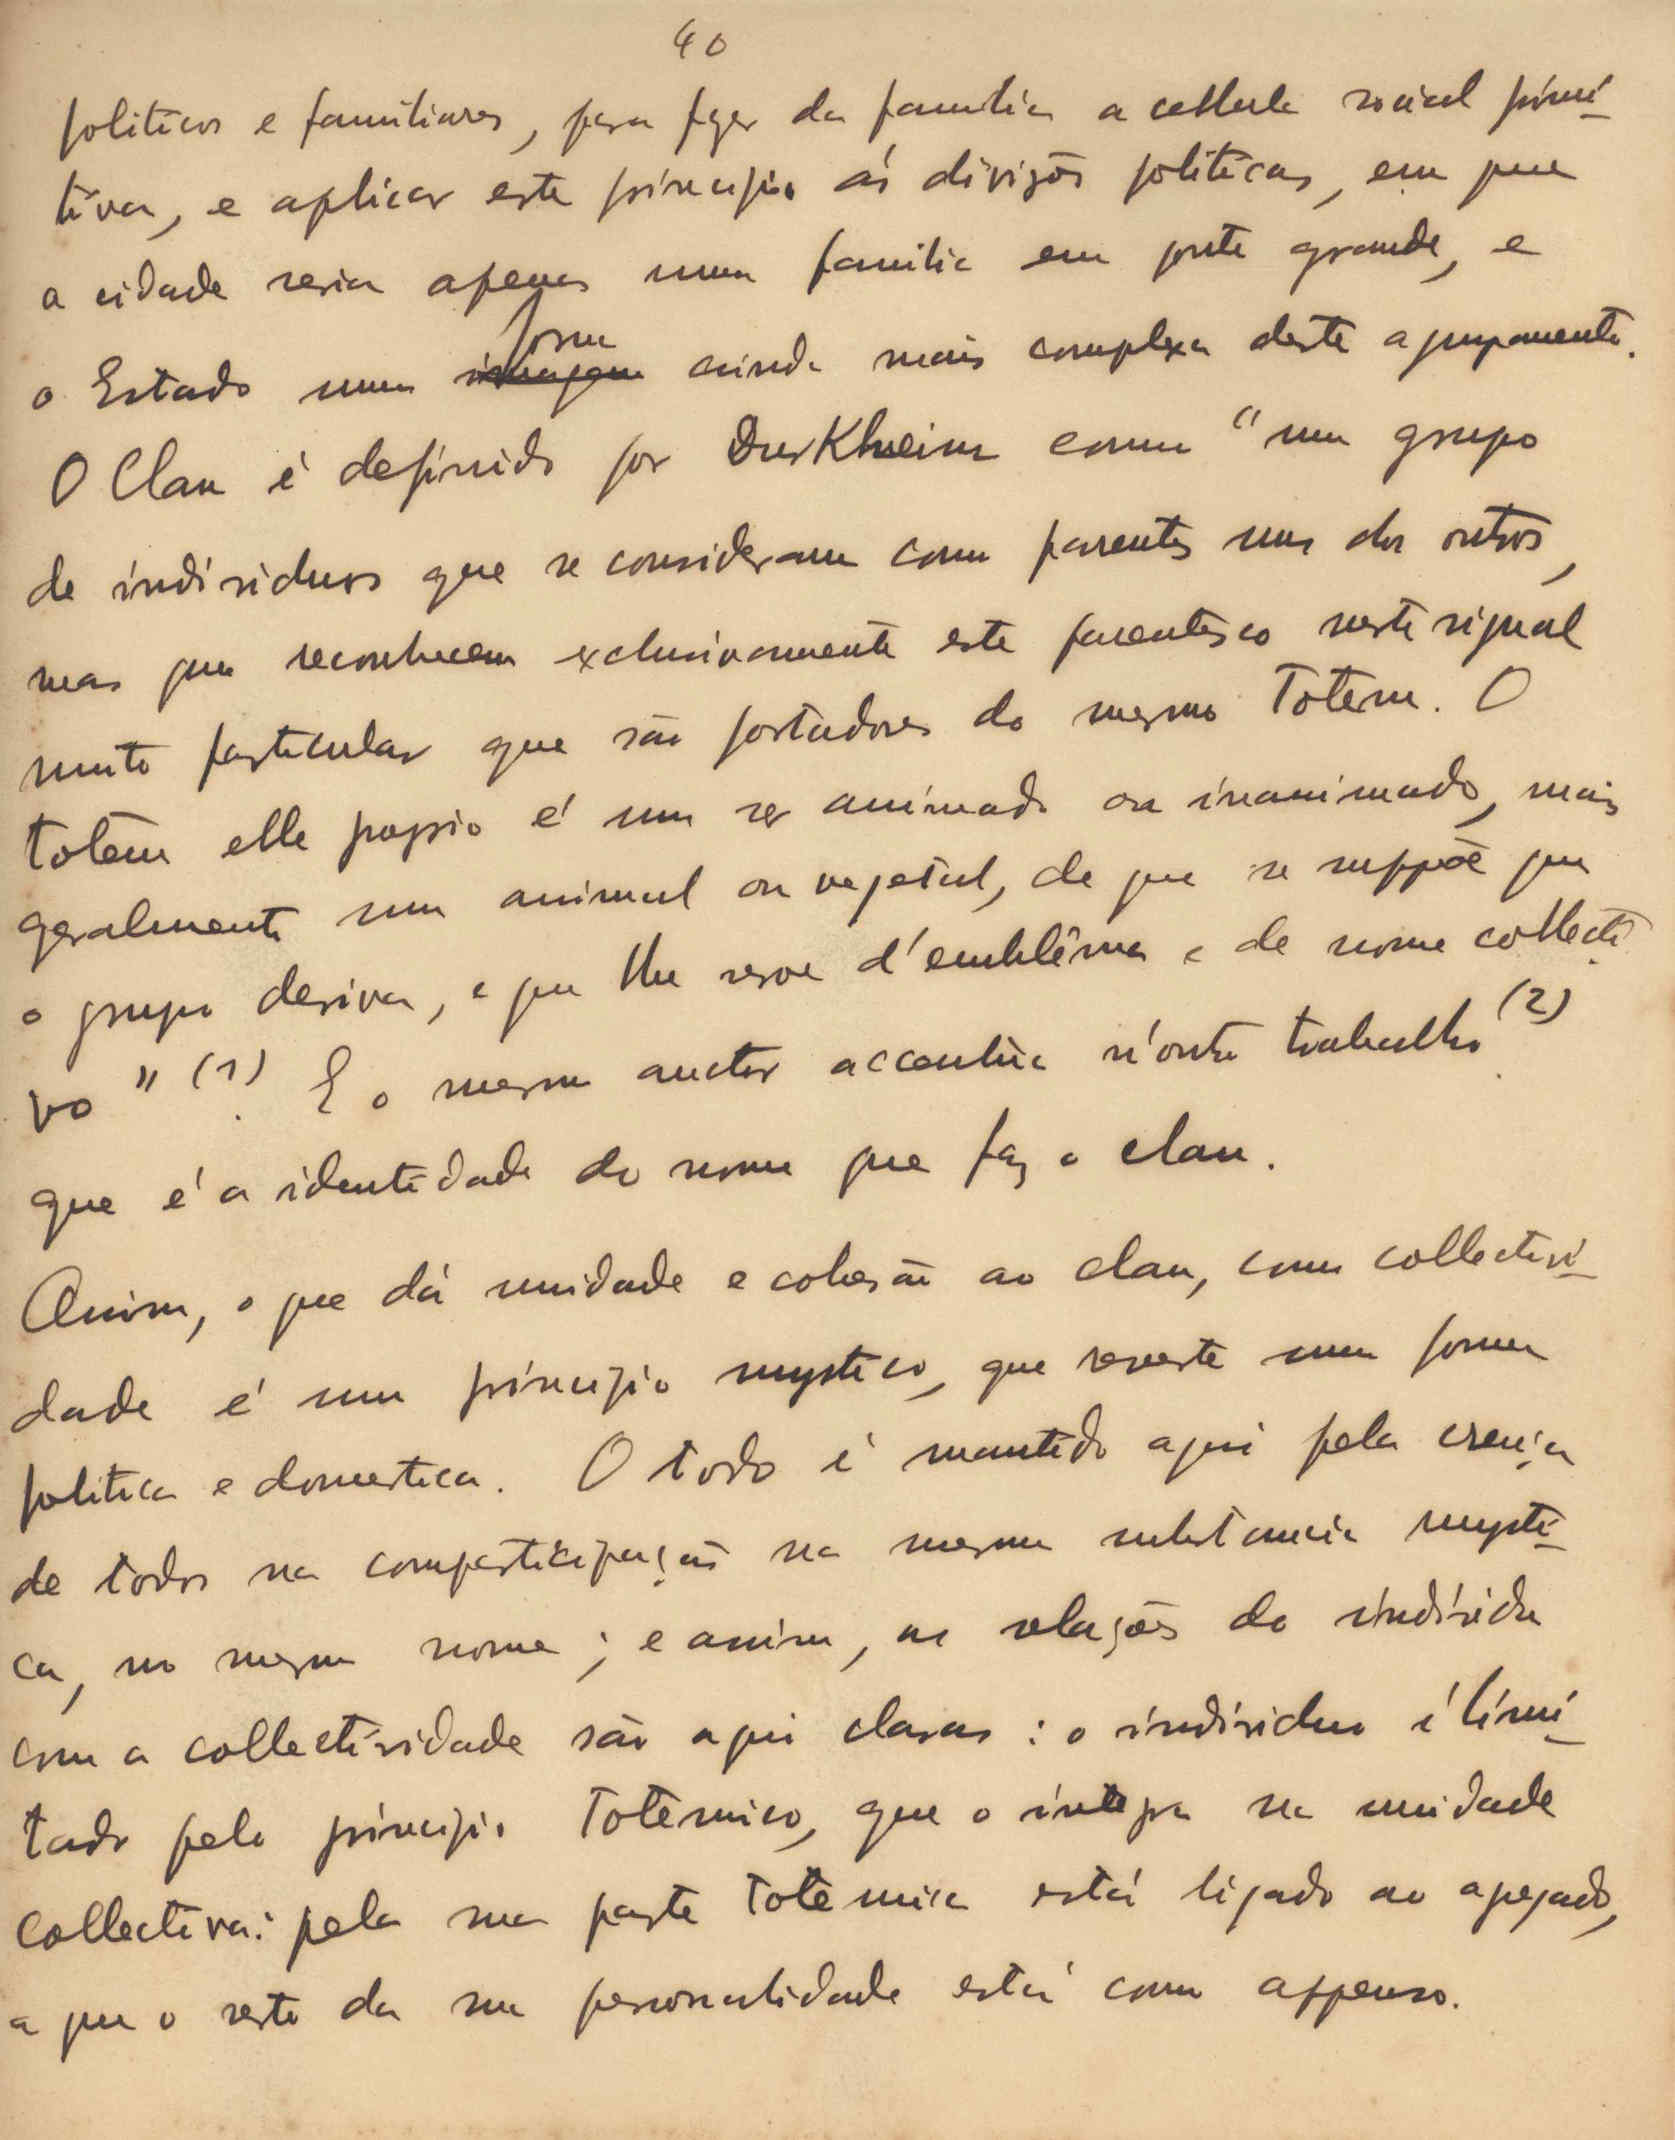 40
politicos e familiares, para fazer da familia a cellula social primi-
tiva, e aplicar este principio ás divisões politicas, em que
a cidade seria apenas uma familia em ponte grande, e
o Estado uma imagem forma ainda mais complexa deste agrupamento.
O Clan é definido por Durkheim como "um grupo
de individuos que se consideram como parentes uns dos outros,
mas que reconhecem exclusivamente este parentesco neste signal
muito particular que são portadores do mesmo Totem. O
totem elle proprio é um ser animado ou inanimado, mais
geralmente um animal ou vegetal, de que se suppõe que
o grupo deriva, e que lhe serve d'emblêma e de nome collecti-
vo" (1). E o mesmo auctor accentúa n'outro trabalho (2)
que é a identidade do nome que faz o clan.
Assim, o que dá unidade e cohesão ao clan, como collectivi-
dade é um principio mystico, que reveste uma forma
politica e domestica. O todo é mantido aqui pela crença
de todos na comparticipação na mesma substancia mysti-
ca, no mesmo nome; e assim, as relações do individuo
com a collectividade são aqui claras: o individuo é limi-
tado pelo principio Totêmico, que o integra na unidade
collectiva: pela sua parte totêmica está ligado ao agregado,
a que o resto da sua personalidade está como appenso.